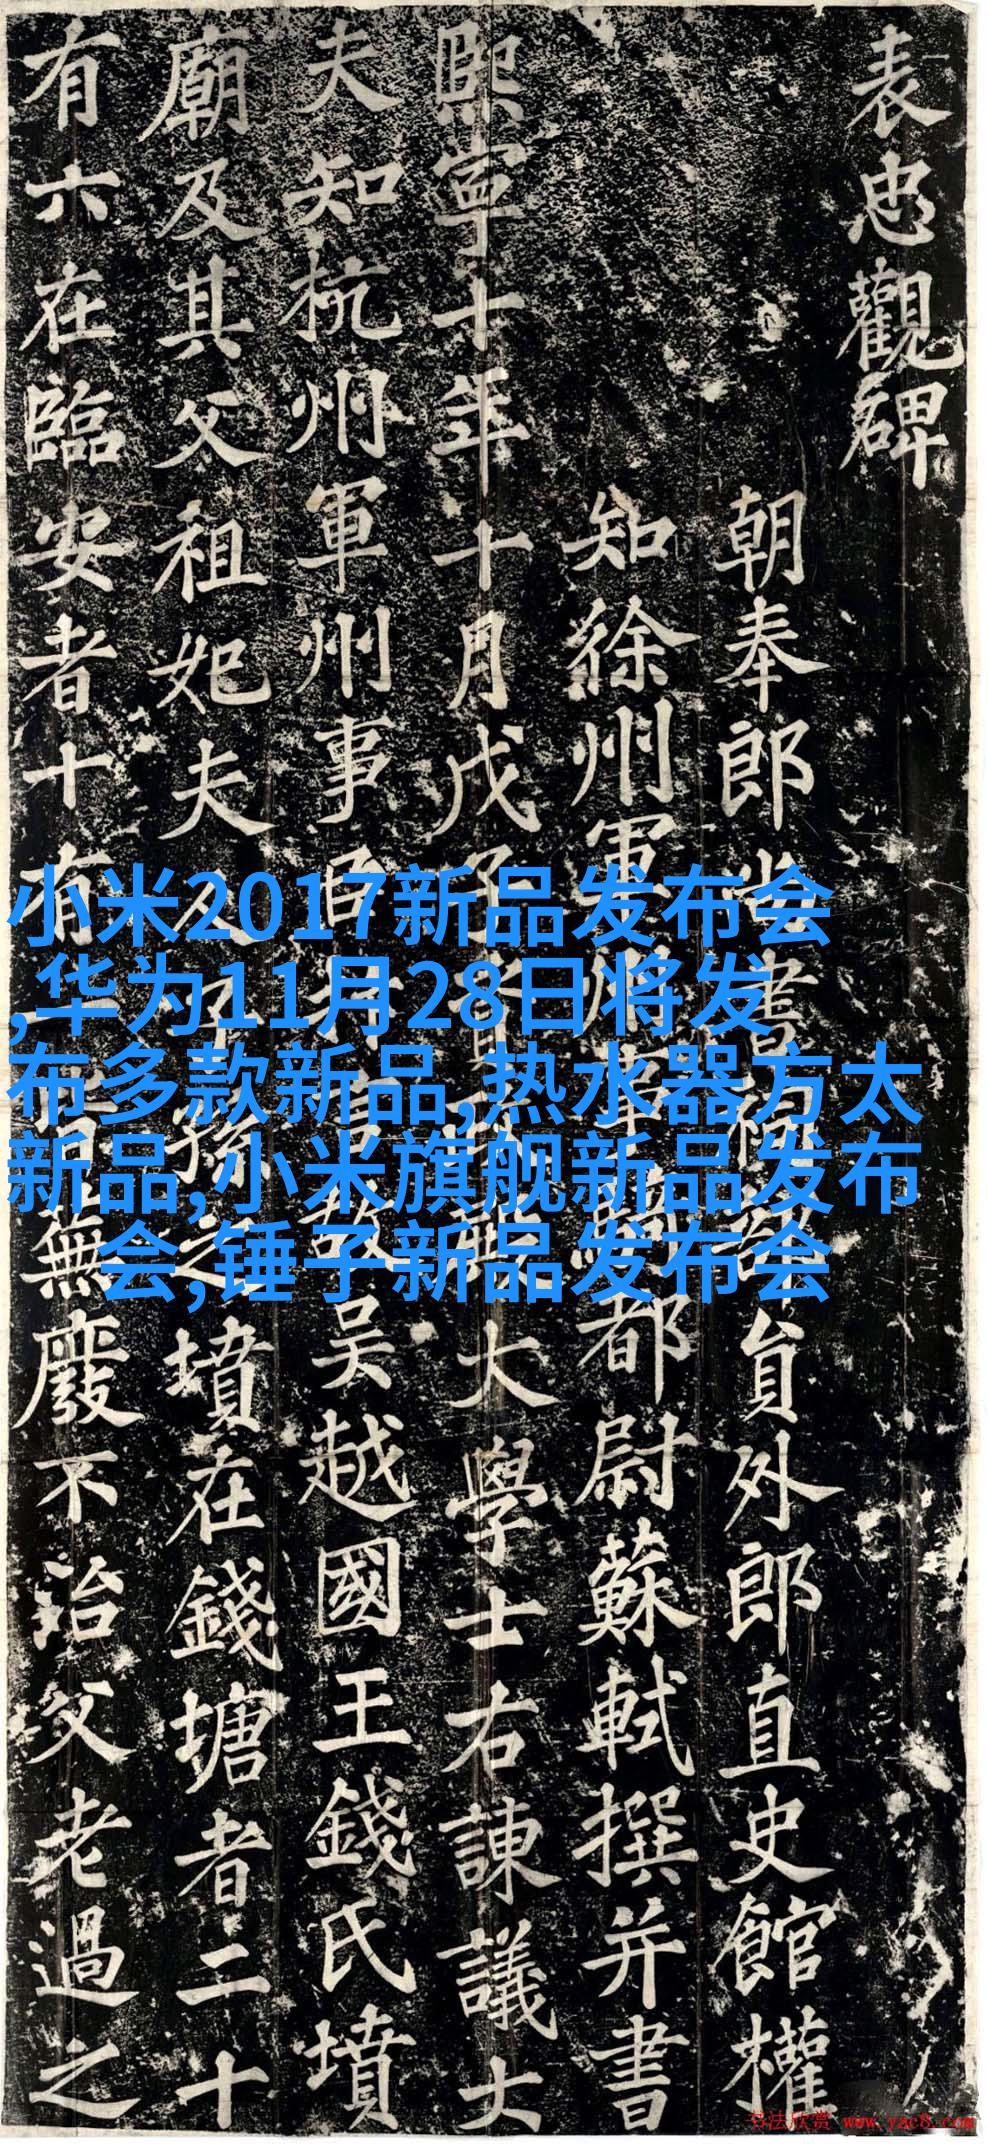 表忠觀碑
朝奉郎尚書祠部員外郎直史館權
知徐州軍州事騎都尉蘇軾撰并書
熙寧十年十月戊子資政殿大學士右諫議大
夫知杭州軍州事臣抃言故吳越國王錢氏墳
廟及其父祖妃夫人子孫之墳在錢塘者二十
有六在臨安者十有一皆蕪廢不治父老過之
小米2017新品发布会
,华为11月28日将发
布多款新品,热水器方太
新品,小米旗舰新品发布
会,锤子新品发布会
书法欣赏 www.yac8.com